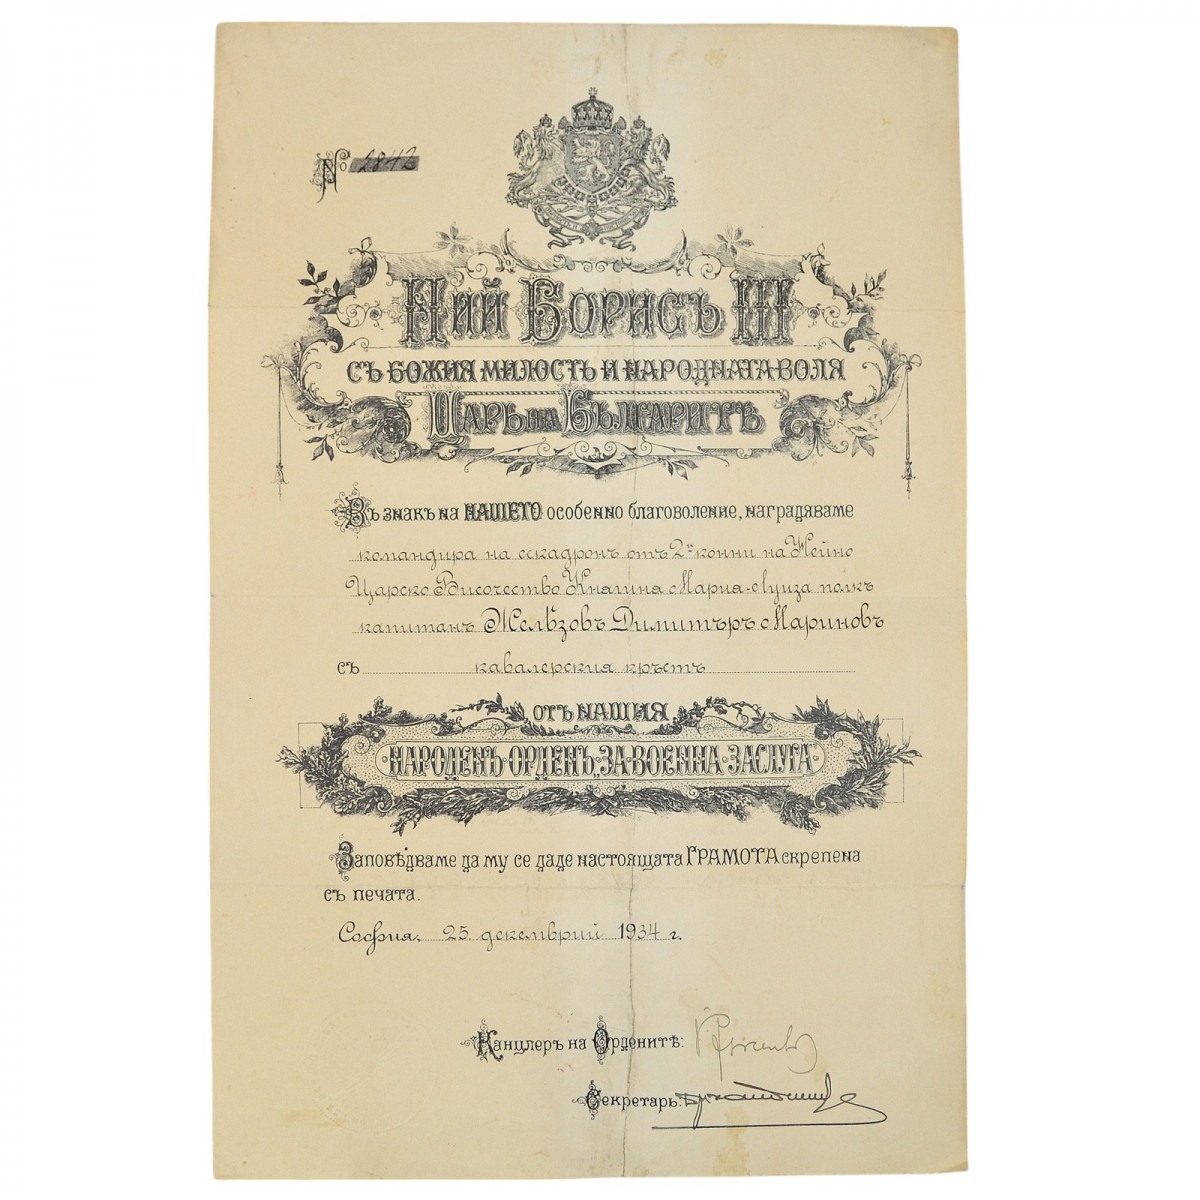 № 2842
Ний Борисъ III
съ Божия милость и народната воля
Царь на Българитѣ
Въ знакъ на НАШЕТО особенно благоволение, наградяваме
командира на ескадронъ отъ 2й конни на Нейно
Царско Височество Княгиня Мария-Луиза полкъ
капитанъ Желѣзовъ Димитъръ Мариновъ
съ кавалерския кръстъ
отъ нашия
Народенъ орденъ „За военна заслуга“
Заповѣдваме да му се даде настоящата ГРАМОТА скрепена
съ печата.
София. 25 декемврий 1934 г.
Канцлеръ на Орденитѣ:
Секретарь: